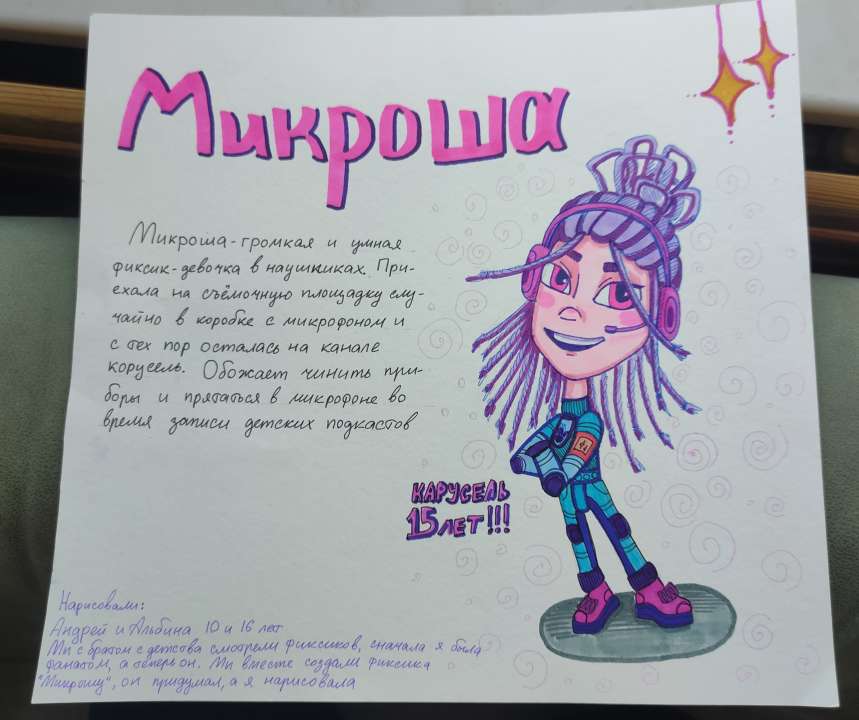 Микроша
Микроша-громкая и умная
фиксик-девочка в наушниках. При-
ехала на съёмочную площадку слу-
чайно в коробке с микрофоном и
с тех пор осталась на канале
карусель. Обожает чинить при-
боры и прятаться в микрофоне во
время записи детских подкастов
КАРУСЕЛЬ
15 ЛЕТ!!!
Нарисовали:
Андрей и Альбина 10 и 16 лет
Мы с братом с детства смотрели фиксиков, сначала я была
фанатом, а теперь он. Мы вместе создали фиксика
"Микрошу", он придумал, а я нарисовала